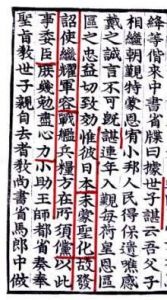 緯等偕來中書省牒曰據世子諶云吾父子
相繼朝覲特蒙恩宥小邦人民得保遺噍感
戴之誠言不可旣諶連年入覲每荷皇恩區
區之忠益切致効惟彼日本未蒙聖化故發
詔使繼耀軍容戰艦兵糧方在所須儻以此
事委臣庶幾勉盡心力小助王師都省奏奉
聖旨敎世子親自去者敎尙書省馬郞中做